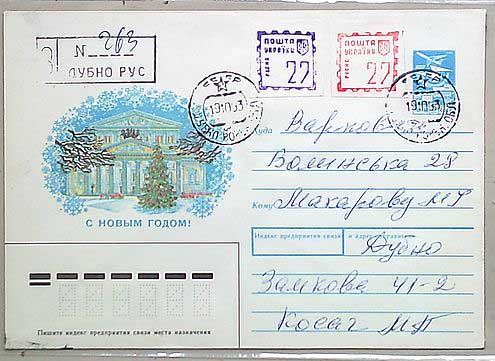 N 263
ДУБНО РУС
ПОШТА
УКРАЇНИ
РІВНЕ
27
ПОШТА
УКРАЇНИ
РІВНЕ
27
19 10 93
19 10 93
Куда
Варков
Волинська 28
Кому Макарову М Г
С НОВЫМ ГОДОМ!
Индекс предприятия связи и адрес отправителя
Дубно
Замкова 41-2
Косач МП
Пишите индекс предприятия связи места назначения